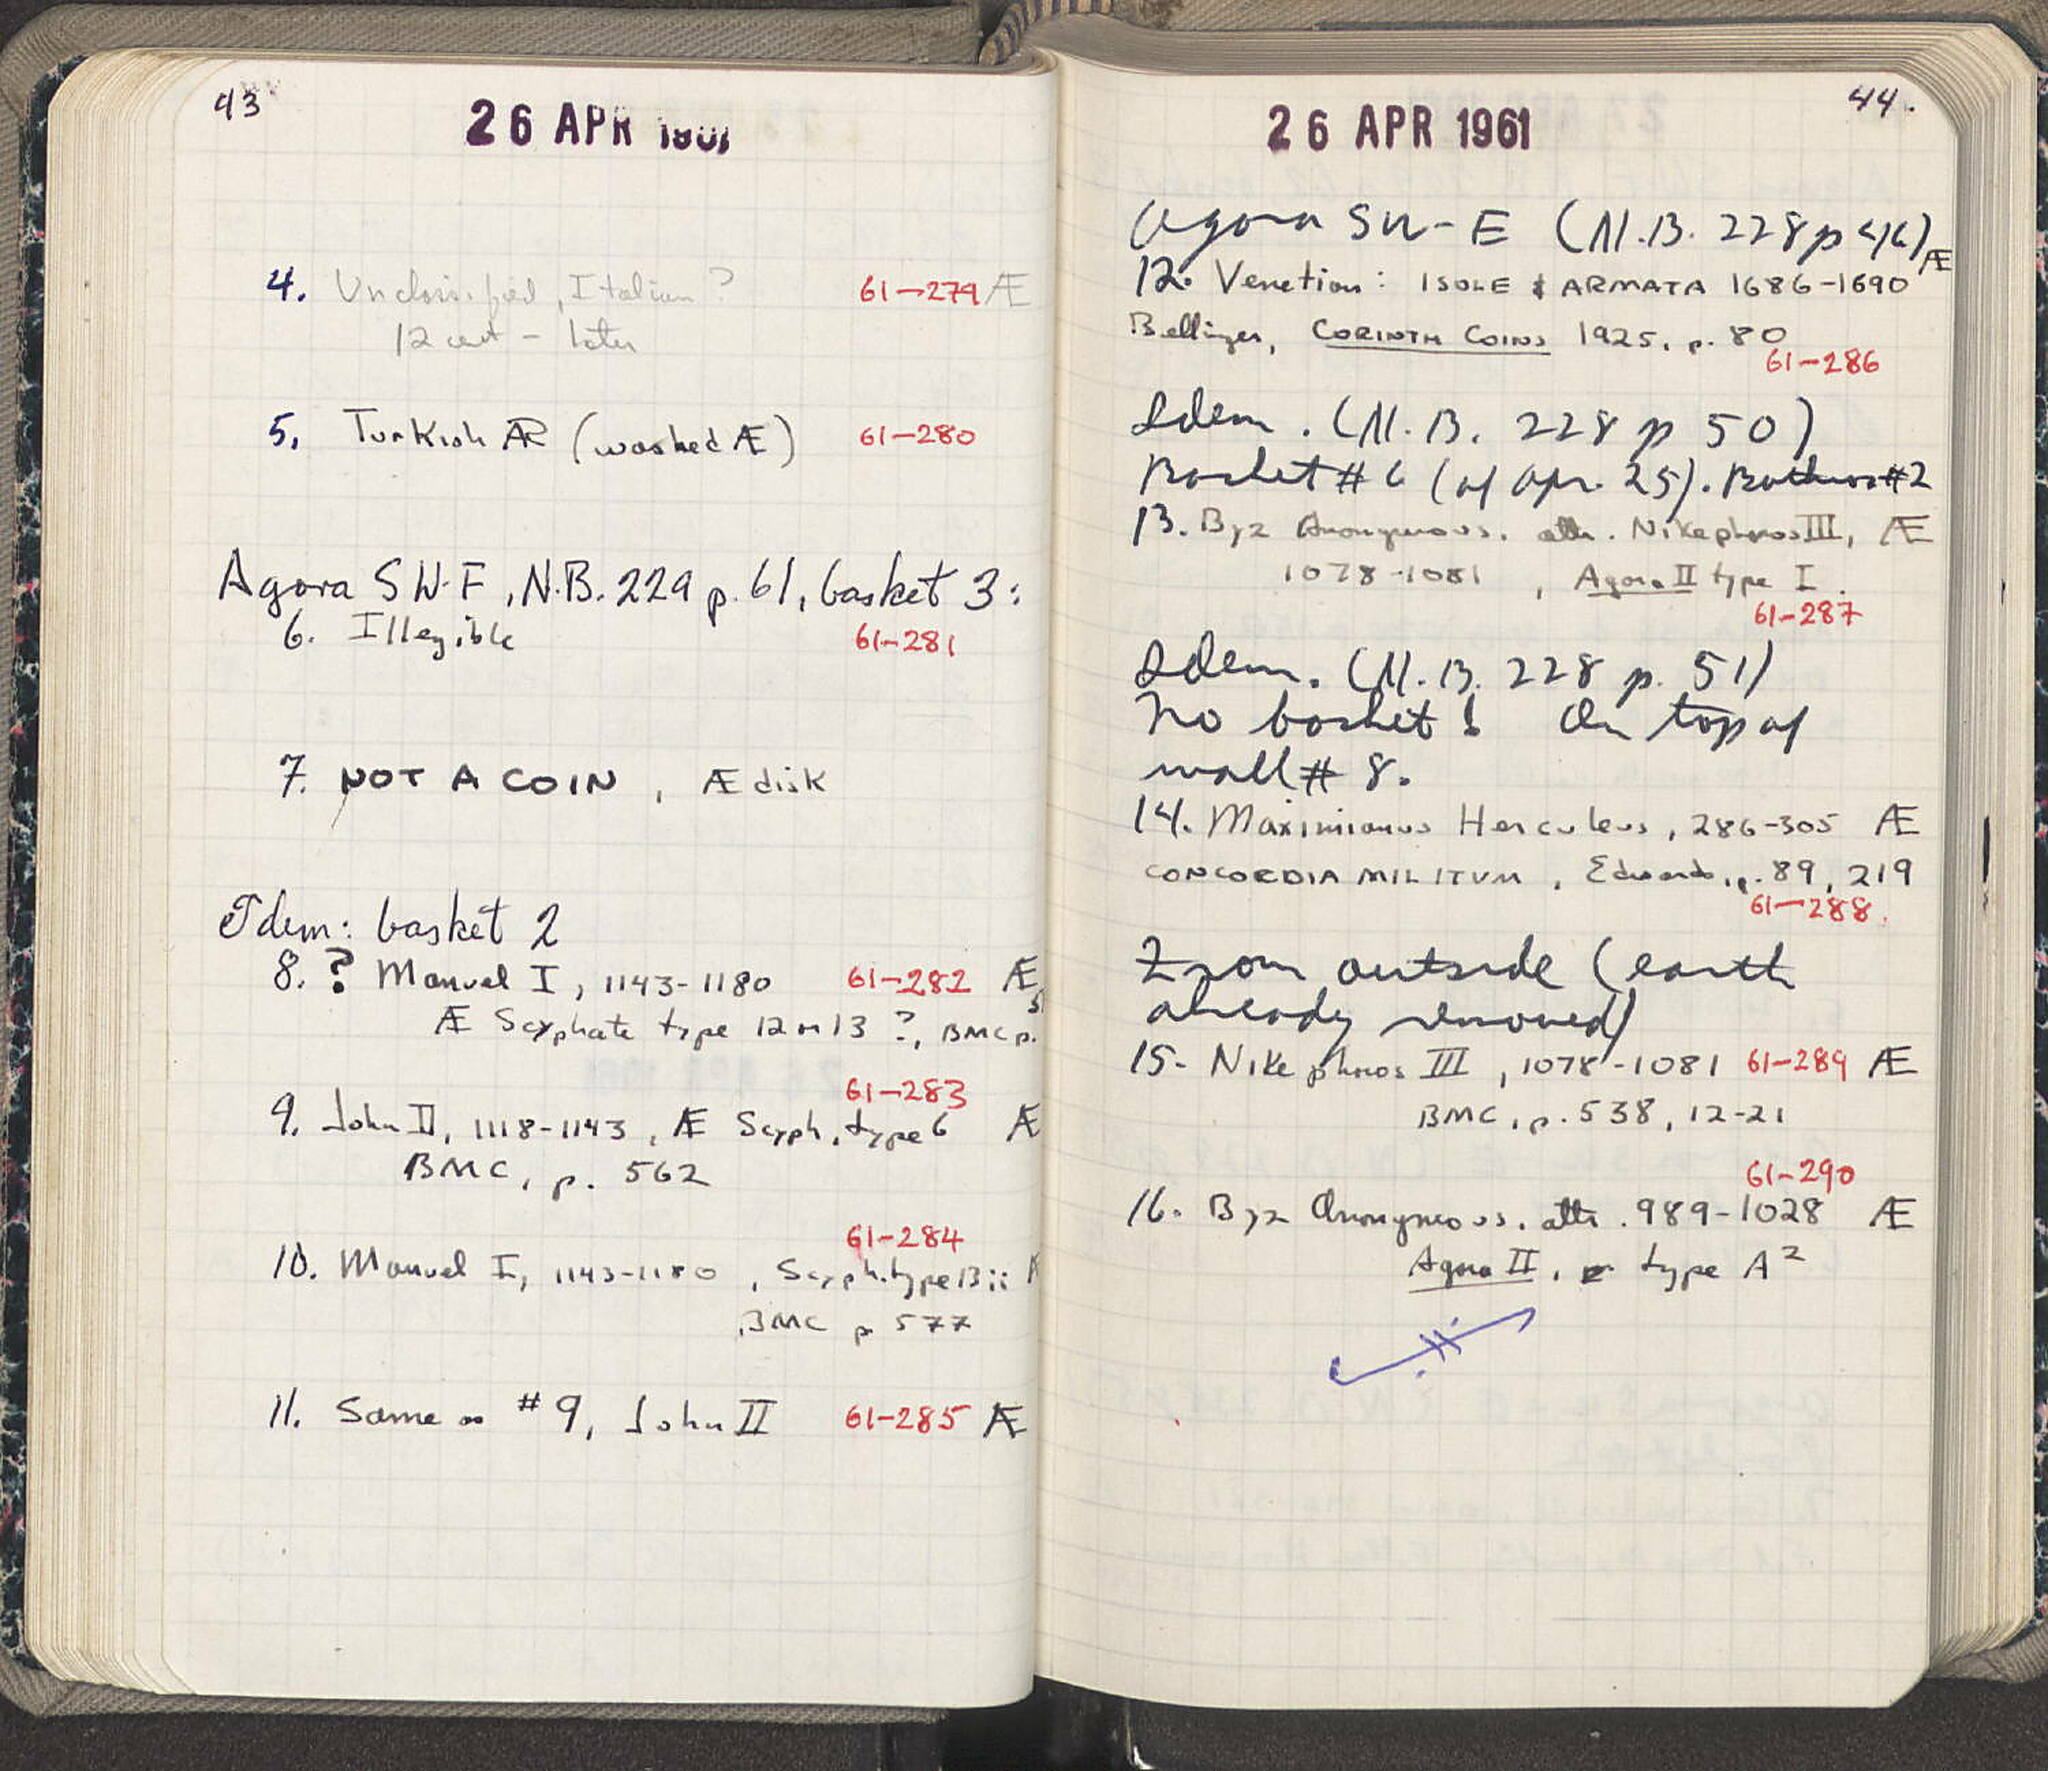 43
26 APR 1961
4. Unclassified, Italian? 61-279 Æ
12 cent - later
5. Turkish AR (washed Æ) 61-280
Agora SW-F, N.B. 229 p. 61, basket 3:
6. Illegible 61-281
7. NOT A COIN, Æ disk
Idem: basket 2
8. ? Manuel I, 1143-1180 61-282 Æ
Æ Scyphate type 12 or 13 ?, BMC p.
61-283
9. John II, 1118-1143, Æ Scyph, type 6 Æ
BMC, p. 562
61-284
10. Manuel I, 1143-1180, Scyph. type 13 ii
BMC p 577
11. Same as #9, John II 61-285 Æ
44.
26 APR 1961
Agora SW-E (N.B. 228 p 46)
12. Venetian: ISOLE & ARMATA 1686-1690 Æ
Bellinger, CORINTH COINS 1925, p. 80
61-286
Idem. (N.B. 228 p 50)
Basket #6 (of Apr. 25). Bothros #2
13. Byz Anonymous. attr. Nikephoros III, Æ
1078-1081, Agora II type I.
61-287
Idem. (N.B. 228 p. 51)
No basket! On top of
wall #8.
14. Maximianus Herculeus, 286-305 Æ
CONCORDIA MILITVM, Edwards, p. 89, 219
61-288.
From outside (earth
already removed)
15. Nikephoros III, 1078-1081 61-289 Æ
BMC, p. 538, 12-21
61-290
16. Byz Anonymous. attr. 989-1028 Æ
Agora II, type A²